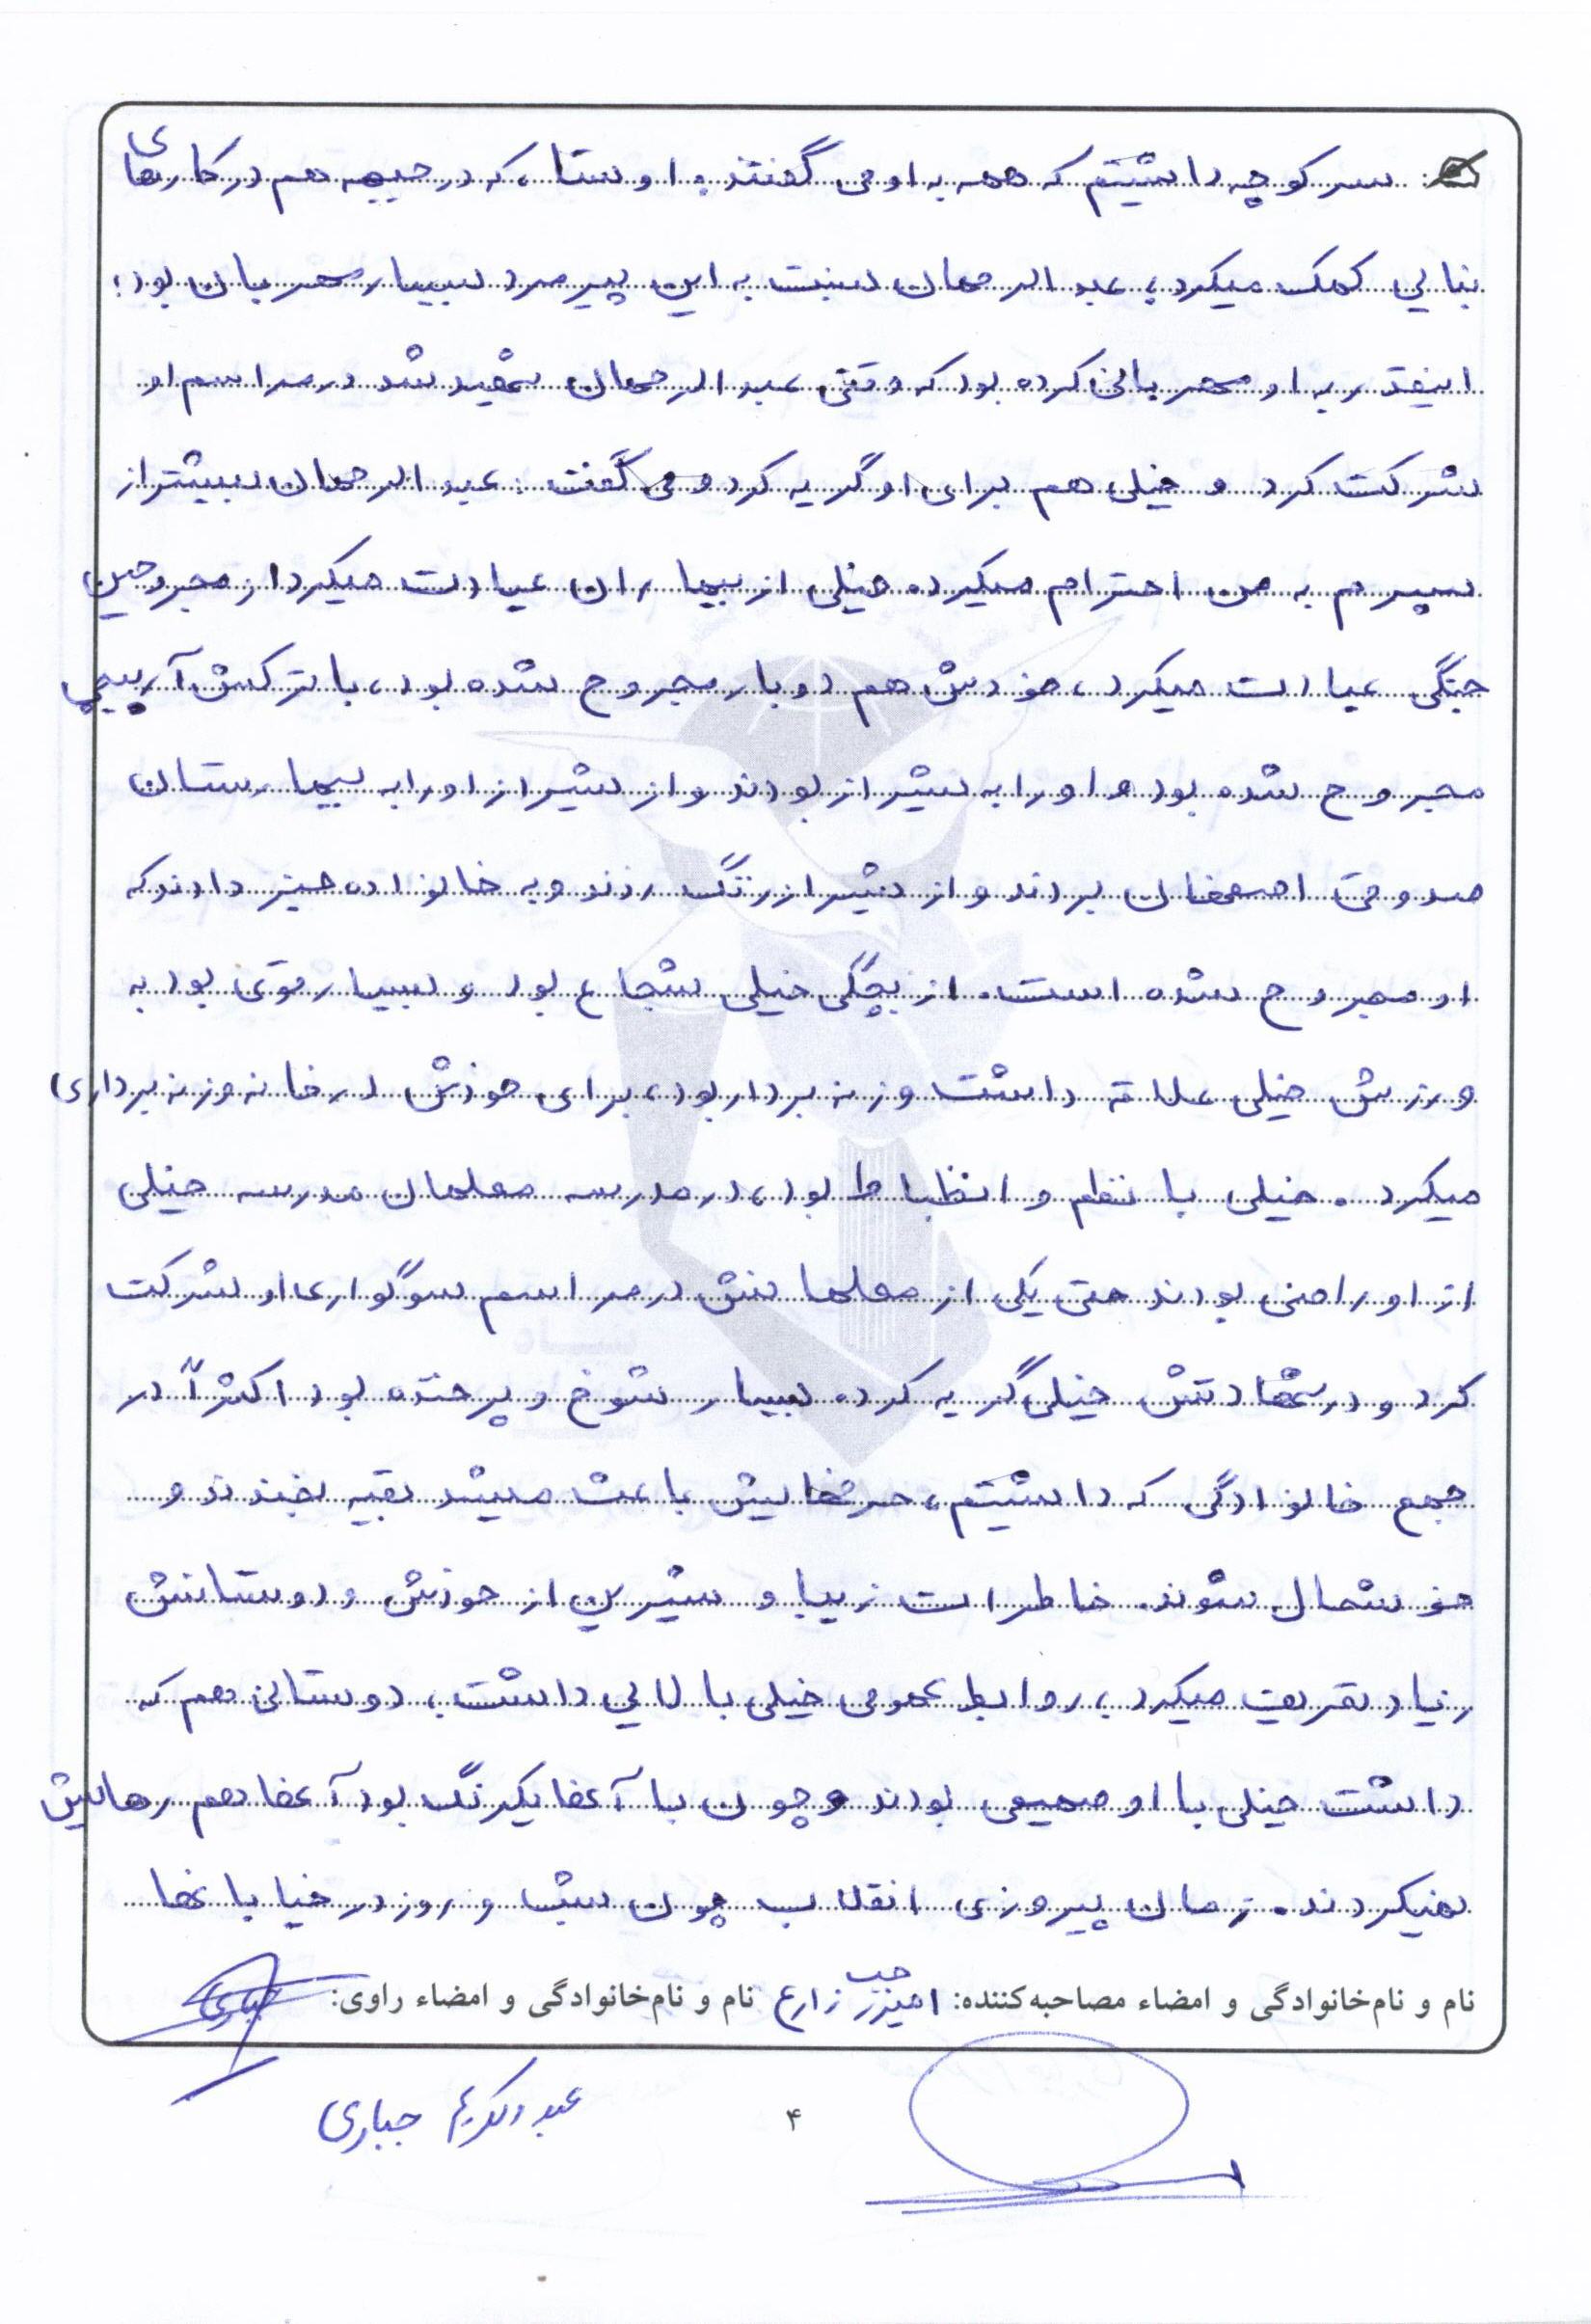 سر کوچه داشتیم که همه به او می گفتند: اوستا، که در جبهه هم در کارهای
بنایی کمک میکرد، عبدالرحمان نسبت به این پیرمرد بسیار مهربان بود،
اینقدر به او مهربانی کرده بود که وقتی عبدالرحمان شهید شد در مراسم او
شرکت کرد و خیلی هم برای او گریه کرد و می گفت: عبدالرحمان بیشتر از
پسرم به من احترام میکرد. خیلی از بیماران عیادت میکرد از مجروحین
جنگی عیادت میکرد، خودش هم دوبار مجروح شده بود، با ترکش آرپیجی
مجروح شده بود و او را به شیراز بودند و از شیراز او را به بیمارستان
صدوقی اصفهان بردند و از شیراز زنگ زدند و به خانواده خبر دادند که
او مجروح شده است. از بچگی خیلی شجاع بود و بسیار قوی بود به
ورزش خیلی علاقه داشت وزنه بردار بود، برای خودش در خانه وزنه برداری
میکرد. خیلی با نظم و انظباط بود، در مدرسه معلمان مدرسه خیلی
از او راضی بودند حتی یکی از معلمانش در مراسم سوگواری او شرکت
کرد و در شهادتش خیلی گریه کرد. بسیار شوخ و پرخنده بود اکثراً در
جمع خانوادگی که داشتیم، حرفهایش باعث میشد بقیه بخندند و
خوشحال شوند. خاطرات زیبا و شیرین از خودش و دوستانش
زیاد تعریف میکرد، روابط عمومی خیلی بالایی داشت، دوستانی هم که
داشت خیلی با او صمیمی بودند و چون با آنها یکرنگ بود آنها هم رهایش
نمیکردند. زمان پیروزی انقلاب چون شب و روز در خیابانها
نام و نام‌خانوادگی و امضاء مصاحبه‌کننده: زارع نام و نام‌خانوادگی و امضاء راوی: جباری
عبدالکریم جباری
۴